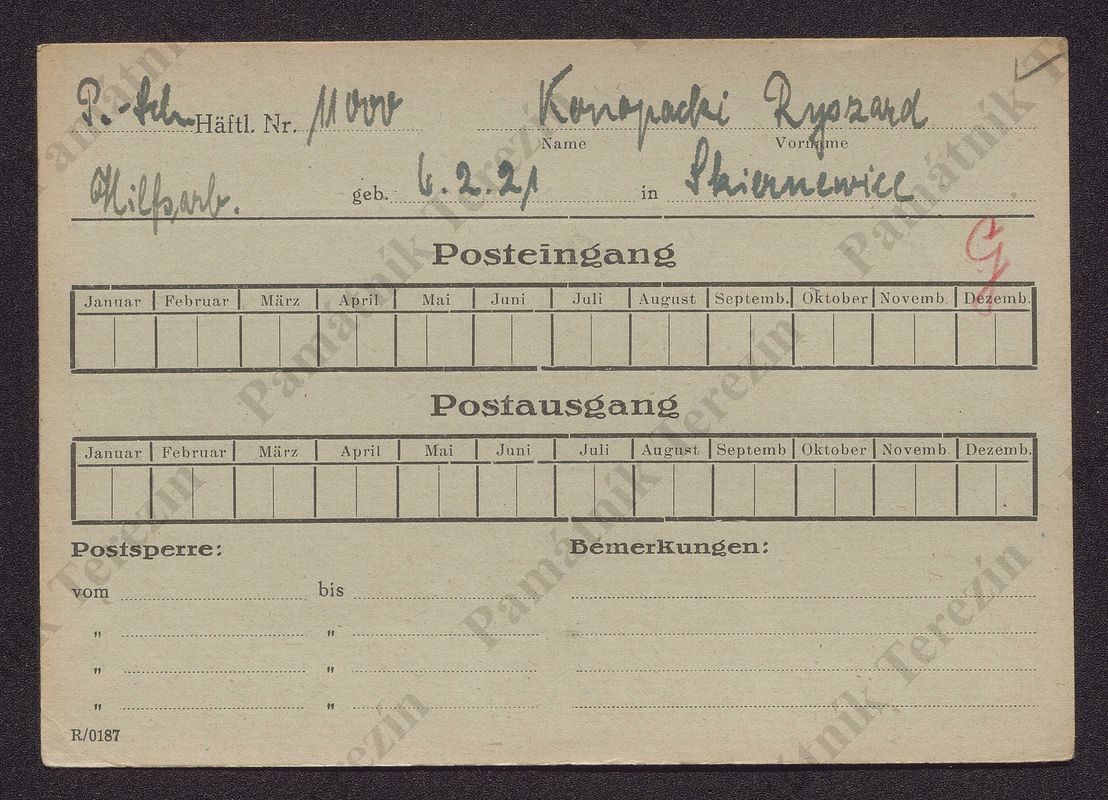 P.-Sch. Häftl. Nr. 11000 Konopacki Ryszard
Name Vorname
Hilfsarb. geb. 6.2.21 in Skiernewice
G
Posteingang
Januar Februar März April Mai Juni Juli August Septemb. Oktober Novemb. Dezemb.
Postausgang
Januar Februar März April Mai Juni Juli August Septemb Oktober Novemb. Dezemb.
Postsperre: Bemerkungen:
vom bis
" "
" "
" "
R/0187
Památník Terezín